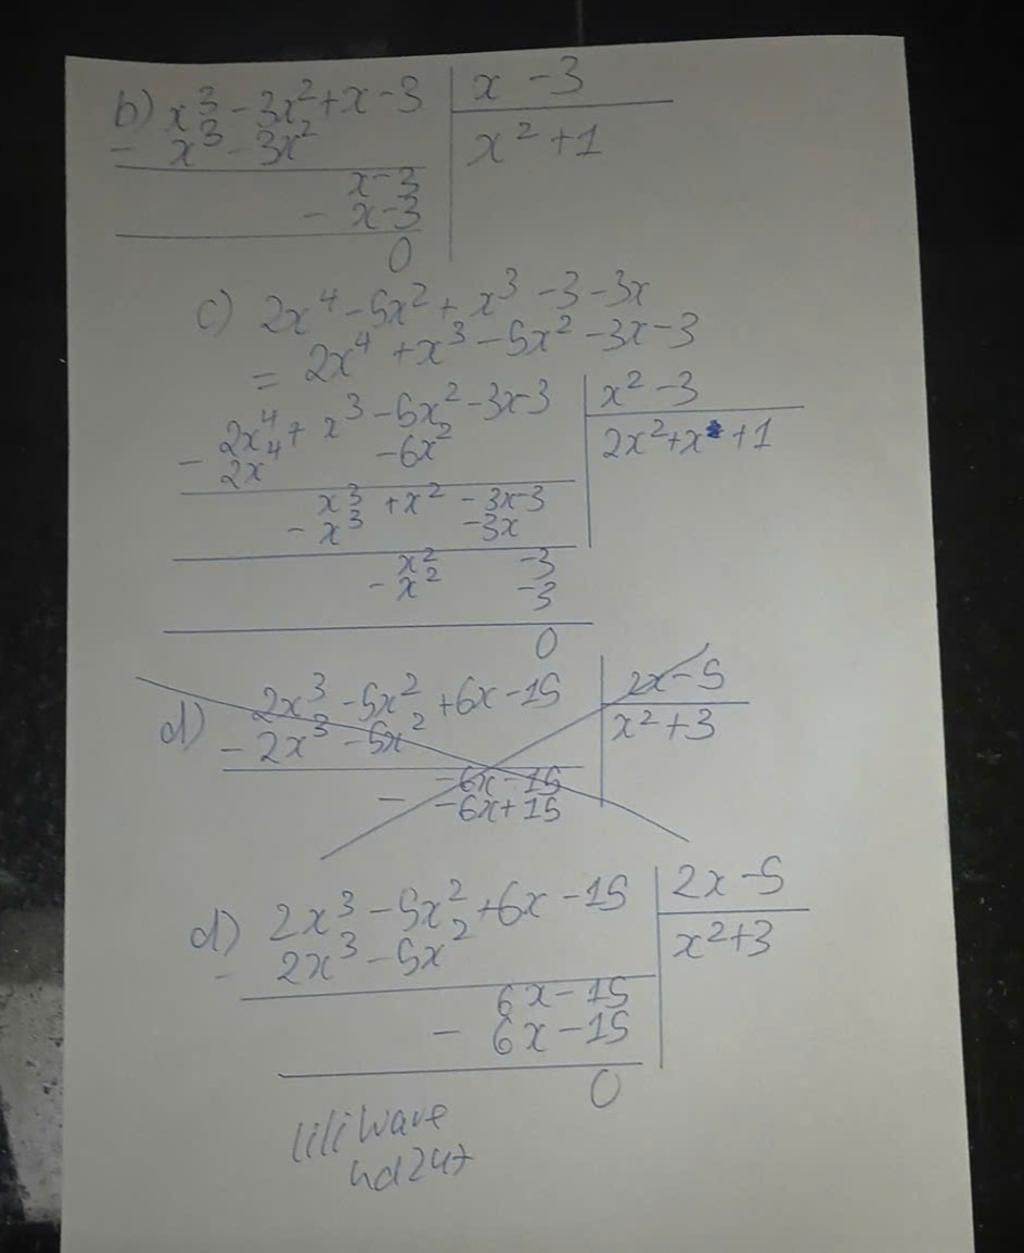 b) x³ - 3x² + x - 3 | x - 3
- x³ - 3x² | x² + 1
x - 3
- x - 3
0
c) 2x⁴ - 5x² + x³ - 3 - 3x
= 2x⁴ + x³ - 5x² - 3x - 3
2x⁴ + x³ - 5x² - 3x - 3 | x² - 3
- 2x⁴ - 6x² | 2x² + x + 1
x³ + x² - 3x - 3
- x³ - 3x
x² - 3
- x² - 3
0
d) 2x³ - 5x² + 6x - 15 | 2x - 5
- 2x³ - 5x² | x² + 3
- 6x - 15
- - 6x + 15
d) 2x³ - 5x² + 6x - 15 | 2x - 5
- 2x³ - 5x² | x² + 3
6x - 15
- 6x - 15
0
liliwave
hd247